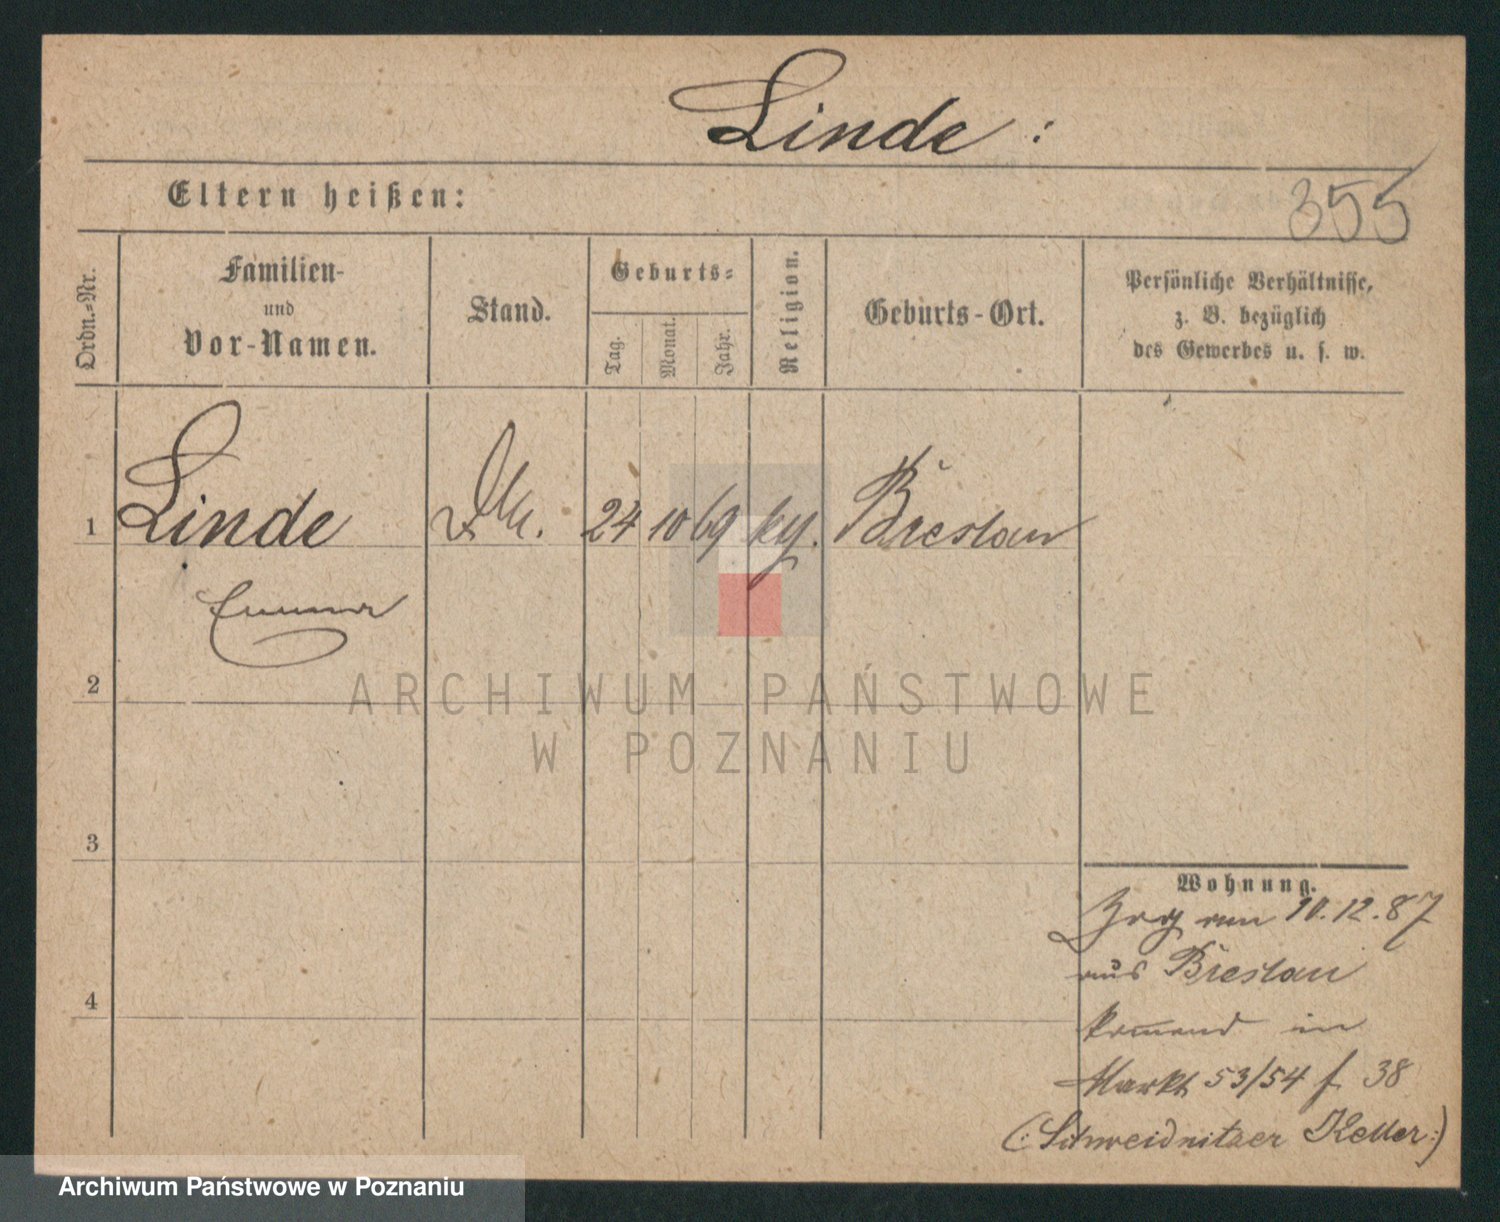 Linde :
Eltern heißen:
355
Ordn.-Nr.
Familien-
und
Vor-Namen.
Stand.
Geburts-
Tag.
Monat.
Jahr.
Religion.
Geburts-Ort.
Persönliche Verhältnisse,
z. B. bezüglich
des Gewerbes u. s. w.
1 Linde 24 10 69 Breslau
Emma
2
ARCHIWUM PAŃSTWOWE
W POZNANIU
3
4
Wohnung.
Zzg am 10.12.87
aus Breslau
kommend in
Markt 53/54 f 38
(: Schweidnitzer Keller :)
Archiwum Państwowe w Poznaniu